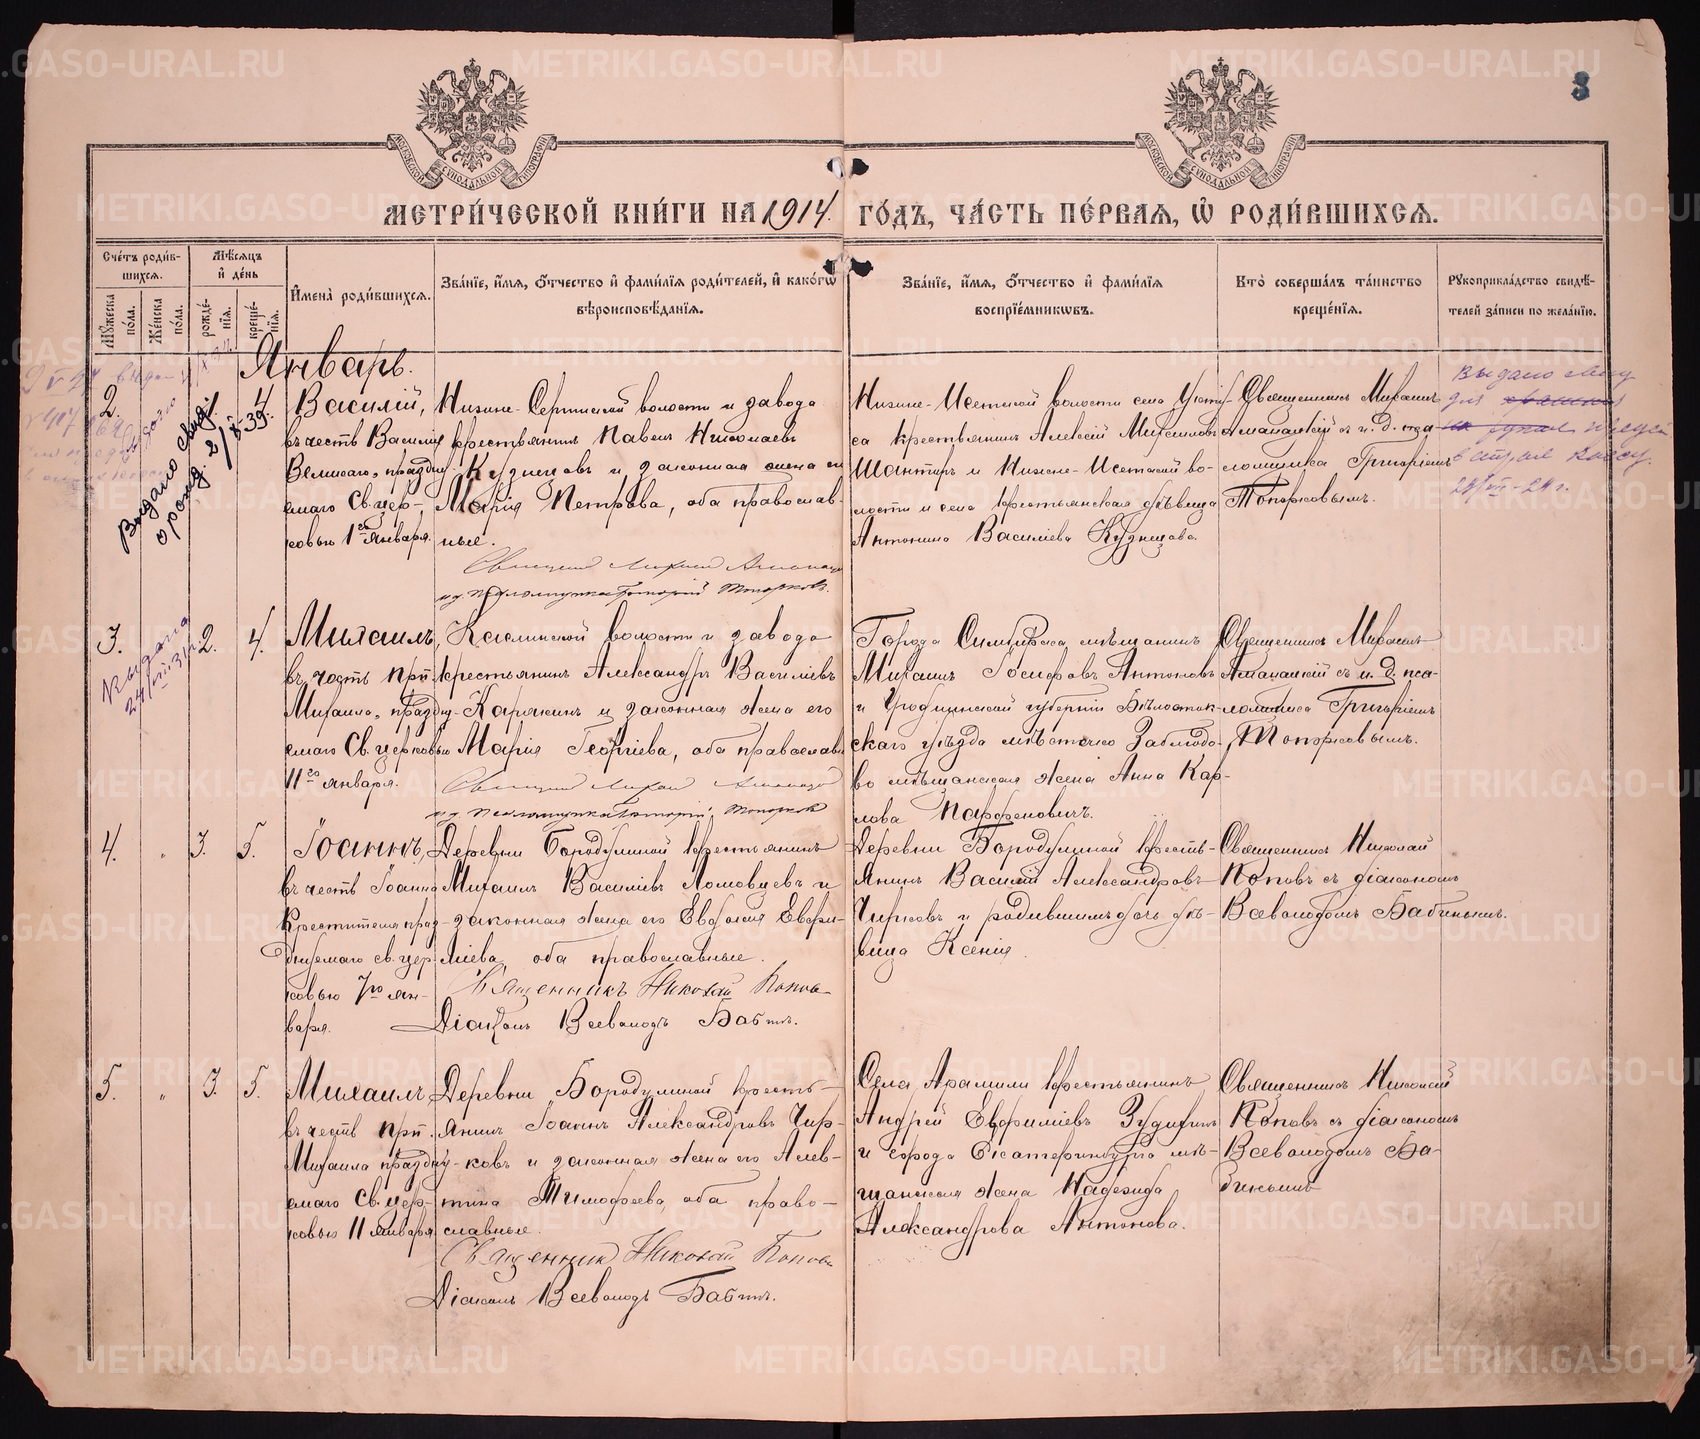 3
МОСКОВСКОЙ СѴНОДАЛЬНОЙ ТИПОГРАФІИ
МОСКОВСКОЙ СѴНОДАЛЬНОЙ ТИПОГРАФІИ
МЕТРИ́ЧЕСКОЙ КНИ́ГИ НА 1914. ГО́ДЪ, ЧА́СТЬ ПЕ́РВАЯ, Ѡ҆ РОДИ́ВШИХСЯ.
Сче́тъ роди́в-
шихся.
Мꙋ́жеска по́ла.
Же́нска по́ла.
Мѣ́сяцъ и҆ де́нь
рожде́-
нїя.
креще́-
нїя.
И҆мена̀ роди́вшихся.
Зва́нїе, и҆́мя, ѻ҆́тчество и҆ фами́лїя роди́телей, и҆ како́гѡ
вѣроисповѣ́данїя.
Зва́нїе, и҆́мя, ѻ҆́тчество и҆ фами́лїя
воспрїе́мникѡвъ.
Кто̀ соверша́лъ та́инство
креще́нїя.
Рꙋкоприкла́дство свидѣ́-
телей за́писи по жела́нїю.
Январь.
2.
4.
Выдано свид.
о рожд. 2/
39.
Василій,
въ честь Василія
Великаго, праздну-
емаго Св. цер-
ковью 1го января.
Нижне-Сергинской волости и завода
крестьянинъ Павелъ Николаевъ
Кузнецовъ и законная жена его
Марія Петрова, оба православ-
ные.
Нижне-Исетской волости села
крестьянинъ Алексій
и Нижне-Исетской во-
лости и села крестьянская дѣвица
Антонина Василіева Кузнецова.
Священникъ Михаилъ
съ и. д. пса-
ломщика Григоріемъ
Топорковымъ.
Выдано
для
3.
2.
4.
Выдана
Михаилъ,
въ честь прп.
Михаила, праздну-
емаго Св. церковью
11го января.
Каслинской волости и завода
крестьянинъ Александръ Василіевъ
Карякинъ и законная жена его
Марія Георгіева, оба православн
Города Симбирска мѣщанинъ
Михаилъ Іосифовъ Антоновъ
и Гродненской губерніи Бѣлосток-
скаго уѣзда мѣстечка Заблудо-
во мѣщанская жена Анна Кар-
лова Парфеновичъ.
Священникъ Михаилъ
съ и. д. пса-
ломщика Григоріемъ
Топорковымъ.
4.
"
3.
5.
Іоаннъ,
въ честь Іоанна
Крестителя празд-
днуемаго св. цер
ковью 7го ян-
варя.
Деревни Бородулиной крестьянинъ
Михаилъ Василіевъ Ломовцевъ и
законная жена его Евдокія Евфи-
міева, оба православные.
Священникъ Николай Поповъ
Діаконъ Всеволодъ Бабинъ.
Деревни Бородулиной кресть-
янинъ Василій Александровъ
Чирковъ и родившимъ дочь дѣ-
вица Ксенія.
Священникъ Николай
Поповъ съ діакономъ
Всеволодомъ Бабинымъ.
5.
"
3.
5.
Михаилъ,
въ честь прп.
Михаила праздну-
емаго Св. цер-
ковью 11 января.
Деревни Бородулиной кресть-
янинъ Іоаннъ Александровъ Чир-
ковъ и законная жена его Алев-
тина Тимофеева, оба право-
славные.
Священникъ Николай Поповъ
Діаконъ Всеволодъ Бабинъ.
Села Арамили крестьянинъ
Андрей Евфиміевъ
и города Екатеринбурга мѣ-
щанская жена Надежда
Александрова Антонова.
Священникъ Николай
Поповъ съ діакономъ
Всеволодомъ Ба-
бинымъ
METRIKI.GASO-URAL.RU